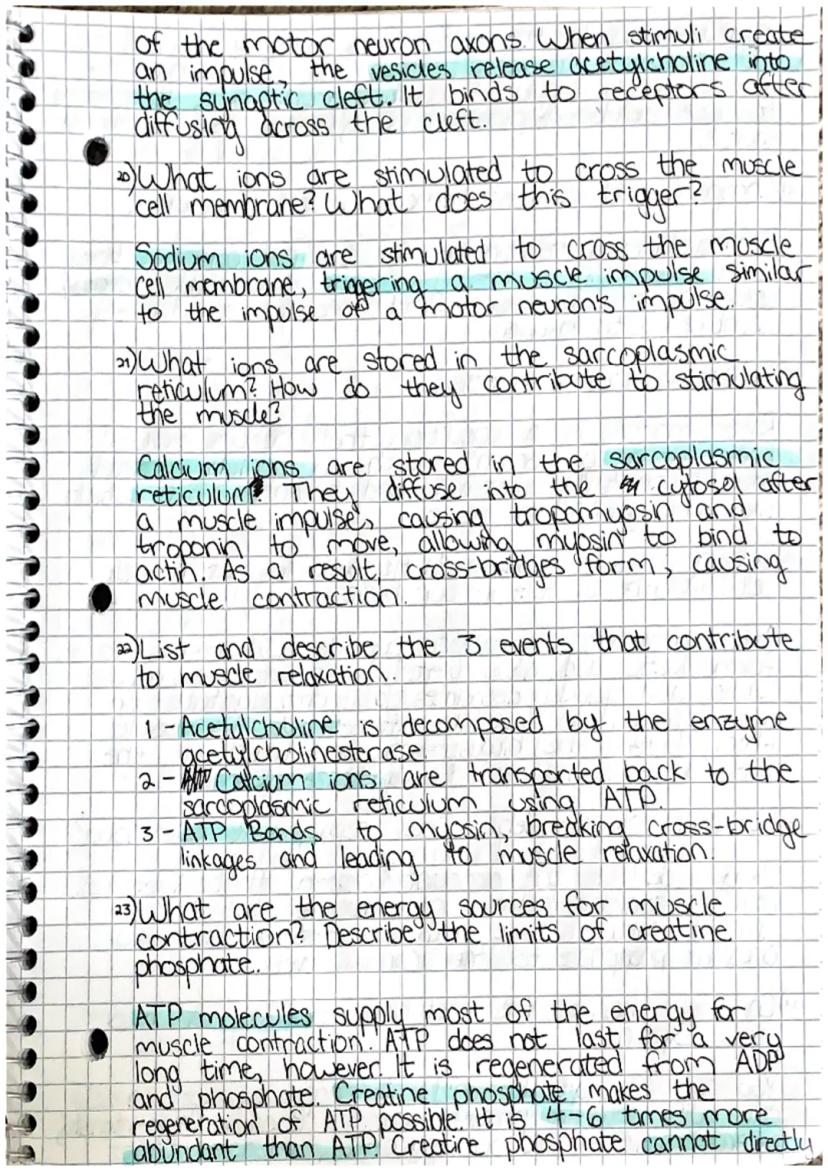 of the motor neuron axons. When stimuli create
an impulse, the vesicles release acetylcholine into
the synaptic cleft. It binds to receptors after
diffusing across the cleft.
20) What ions are stimulated to cross the muscle
cell membrane? What does this trigger?
Sodium ions are stimulated to cross the muscle
cell membrane, triggering a muscle impulse similar
to the impulse of a motor neuron's impulse.
21) What ions are stored in the sarcoplasmic
reticulum? How do they contribute to stimulating
the muscle?
Calcium ions are stored in the sarcoplasmic
reticulum. They diffuse into the cytosol after
a muscle impulse, causing tropomyosin and
troponin to move, allowing myosin to bind to
actin. As a result, cross-bridges form, causing
muscle contraction.
22) List and describe the 3 events that contribute
to muscle relaxation.
1 - Acetylcholine is decomposed by the enzyme
acetylcholinesterase.
2 - Calcium ions are transported back to the
sarcoplasmic reticulum using ATP.
3 - ATP Bonds to myosin, breaking cross-bridge
linkages and leading to muscle relaxation.
23) What are the energy sources for muscle
contraction? Describe the limits of creatine
phosphate.
ATP molecules supply most of the energy for
muscle contraction. ATP does not last for a very
long time, however. It is regenerated from ADP
and phosphate. Creatine phosphate makes the
regeneration of ATP possible. It is 4-6 times more
abundant than ATP. Creatine phosphate cannot directly